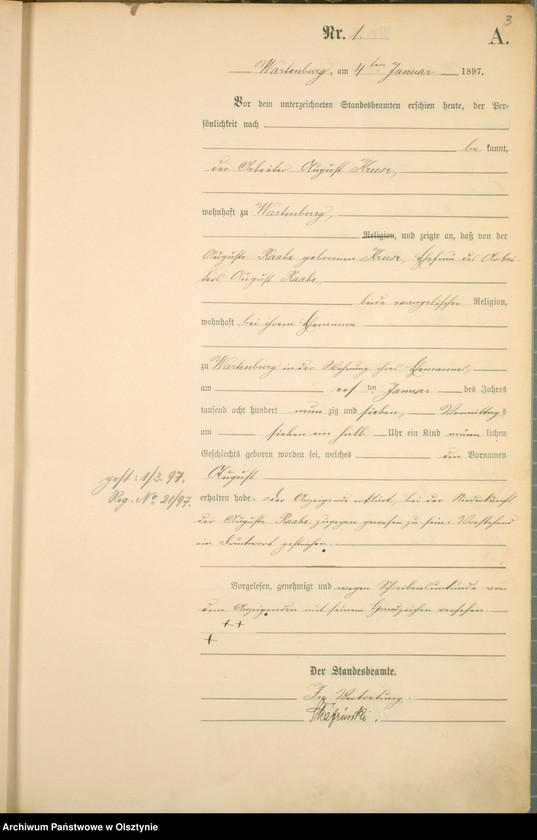 3
Nr. 1.
A.
Wartenburg, am 4ten Januar 1897.
Vor dem unterzeichneten Standesbeamten erschien heute, der Per-
sönlichkeit nach
be kannt,
der Arbeiter August Kruse,
wohnhaft zu Wartenburg,
Religion, und zeigte an, daß von der
Auguste Raabe geborenen Kruse, Ehefrau des Arbei-
ters August Raabe,
beide evangelischer Religion,
wohnhaft bei ihrem Ehemanne
zu Wartenburg in der Wohnung ihres Ehemannes,
am ersten Januar des Jahres
tausend acht hundert neun zig und sieben, Vormittags
um sieben ein halb Uhr ein Kind männlichen
Geschlechts geboren worden sei, welches den Vornamen
August
gest: 1/3. 97.
Reg. No 21/97.
erhalten habe. Der Anzeigende erklärt, bei der Niederkunft
der Auguste Raabe zugegen gewesen zu sein. Vorstehend
ein Druckwort gestrichen.
Vorgelesen, genehmigt und wegen Schreibensunkunde von
dem Anzeigenden mit seinem Handzeichen versehen.
+ +
+
Der Standesbeamte.
In Vertretung.
Archiwum Państwowe w Olsztynie